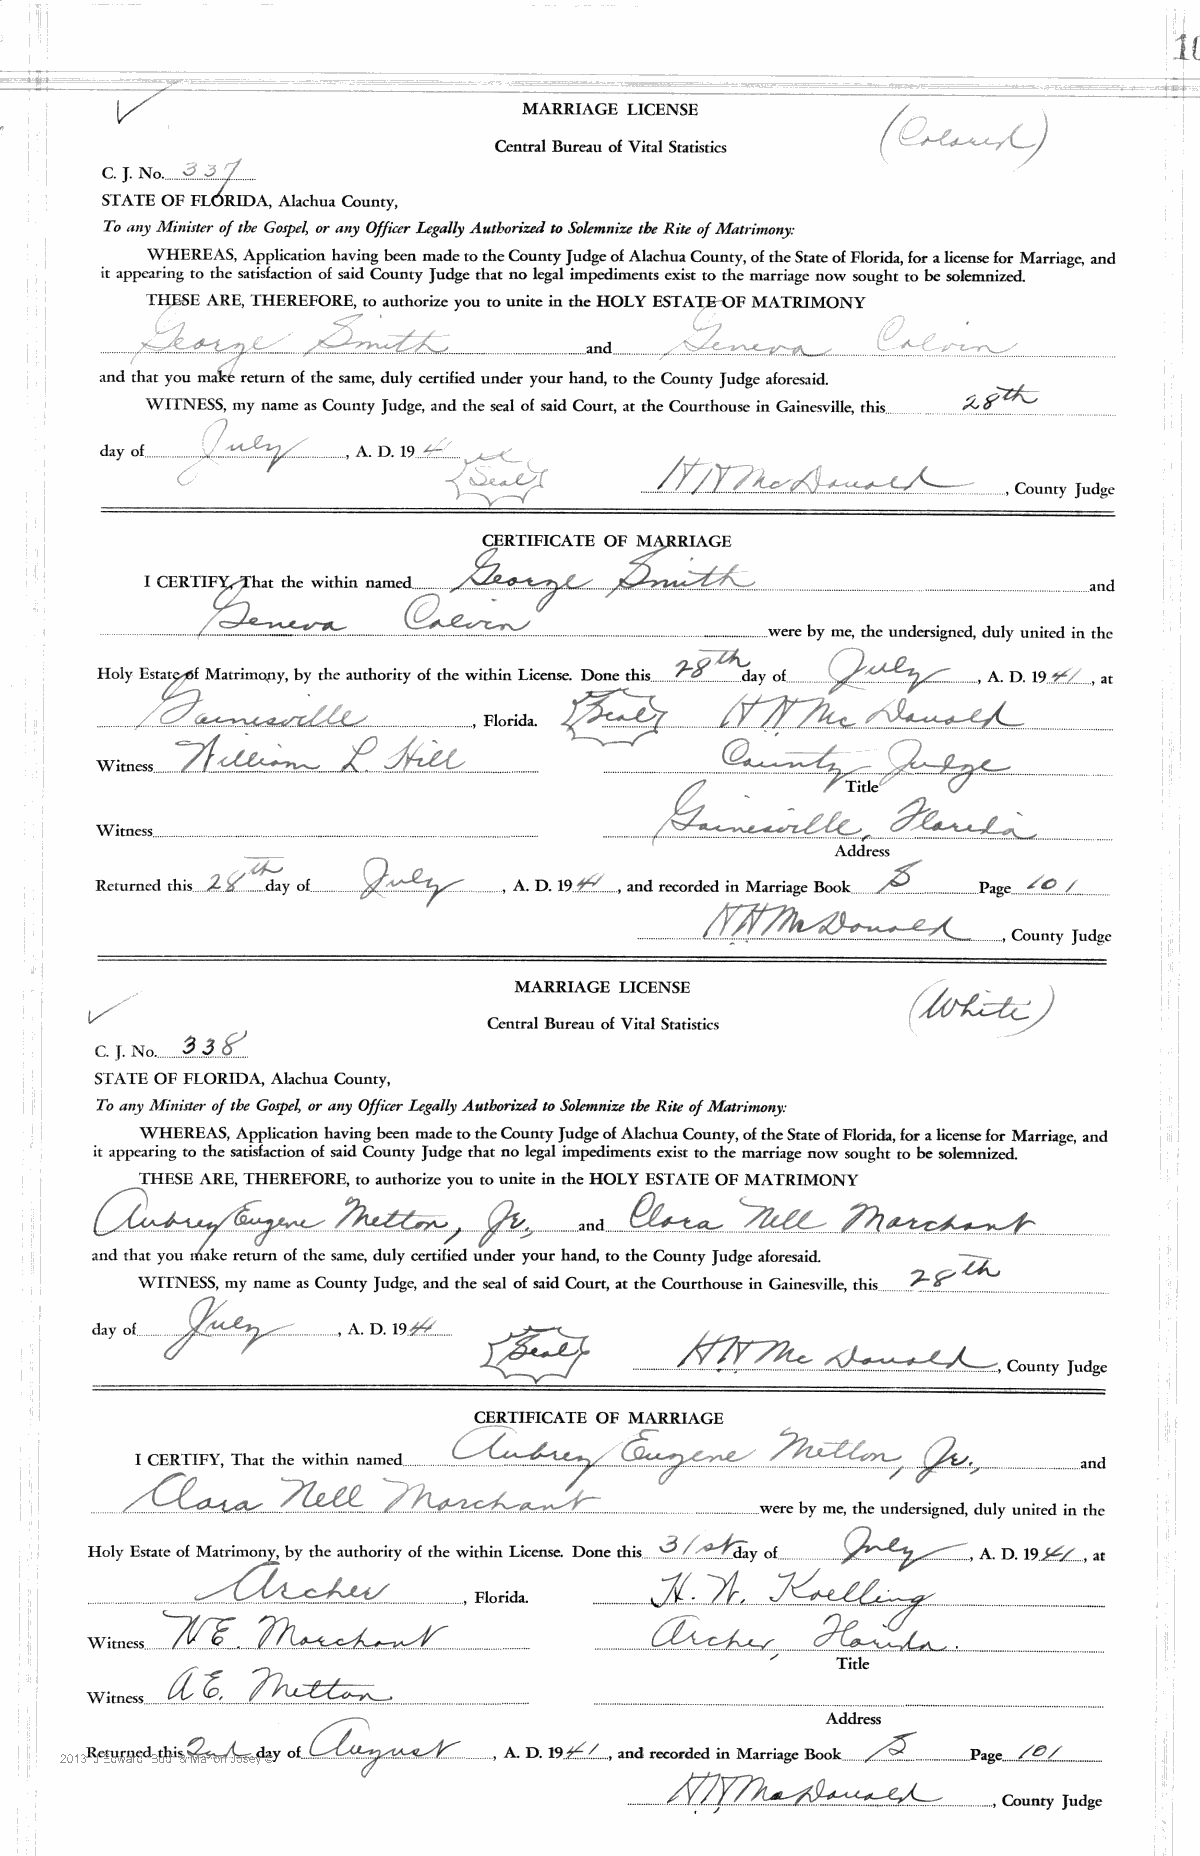 10
MARRIAGE LICENSE
(Colored)
Central Bureau of Vital Statistics
C. J. No. 337
STATE OF FLORIDA, Alachua County,
To any Minister of the Gospel, or any Officer Legally Authorized to Solemnize the Rite of Matrimony:
WHEREAS, Application having been made to the County Judge of Alachua County, of the State of Florida, for a license for Marriage, and
it appearing to the satisfaction of said County Judge that no legal impediments exist to the marriage now sought to be solemnized.
THESE ARE, THEREFORE, to authorize you to unite in the HOLY ESTATE OF MATRIMONY
George Smith and Geneva Calvin
and that you make return of the same, duly certified under your hand, to the County Judge aforesaid.
WITNESS, my name as County Judge, and the seal of said Court, at the Courthouse in Gainesville, this 28th
day of July, A. D. 1941
Seal H H McDonald, County Judge
CERTIFICATE OF MARRIAGE
I CERTIFY, That the within named George Smith and
Geneva Calvin were by me, the undersigned, duly united in the
Holy Estate of Matrimony, by the authority of the within License. Done this 28th day of July, A. D. 1941, at
Gainesville, Florida. Seal H H McDonald
Witness William L. Hill County Judge
Title
Witness Gainesville, Florida
Address
Returned this 28th day of July, A. D. 1941, and recorded in Marriage Book 5 Page 101
H H McDonald, County Judge
MARRIAGE LICENSE
(White)
Central Bureau of Vital Statistics
C. J. No. 338
STATE OF FLORIDA, Alachua County,
To any Minister of the Gospel, or any Officer Legally Authorized to Solemnize the Rite of Matrimony:
WHEREAS, Application having been made to the County Judge of Alachua County, of the State of Florida, for a license for Marriage, and
it appearing to the satisfaction of said County Judge that no legal impediments exist to the marriage now sought to be solemnized.
THESE ARE, THEREFORE, to authorize you to unite in the HOLY ESTATE OF MATRIMONY
Aubrey Eugene Metton, Jr., and Clara Nell Marchant
and that you make return of the same, duly certified under your hand, to the County Judge aforesaid.
WITNESS, my name as County Judge, and the seal of said Court, at the Courthouse in Gainesville, this 28th
day of July, A. D. 1941
Seal H H McDonald, County Judge
CERTIFICATE OF MARRIAGE
I CERTIFY, That the within named Aubrey Eugene Metton, Jr., and
Clara Nell Marchant were by me, the undersigned, duly united in the
Holy Estate of Matrimony, by the authority of the within License. Done this 31st day of July, A. D. 1941, at
Archer, Florida. H. W. Koelling
Witness W E. Marchant Archer, Florida.
Title
Witness A E. Metton
Address
Returned this 2nd day of August, A. D. 1941, and recorded in Marriage Book 5 Page 101
H H McDonald, County Judge